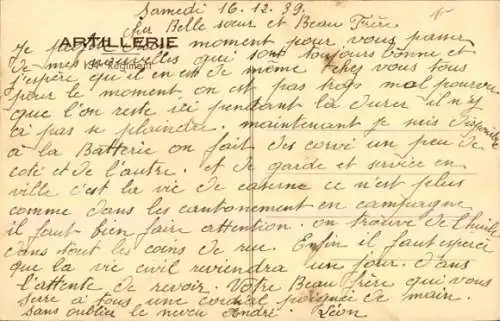 Samedi 16.12.39.
Cher Belle sœur et Beau Frère
Je moment pour vous passer
ARTILLERIE
de mes nouvelles qui sont toujours bonne et
j'espère qu'il en est de même chez vous tous
pour le moment on est pas trop mal pourvu
que l'on reste ici pendant la durer il n'y
a pas se plaindre. maintenant je suis disponible
à la Batterie on fait des corvé un peu de
coté et de l'autre. et de garde et service en
ville c'est la vie de caserne ce n'est plus
comme dans les cantonement en campagne
il faut bien faire attention. on trouve de l'huile
dans tout les coins de rue. Enfin il faut esperer
que la vie civil reviendra un jour. dans
l'attente de revoir. Votre Beau Frère qui vous
serre à tous une cordial poignée de main.
sans oublier le neveu André. Léon